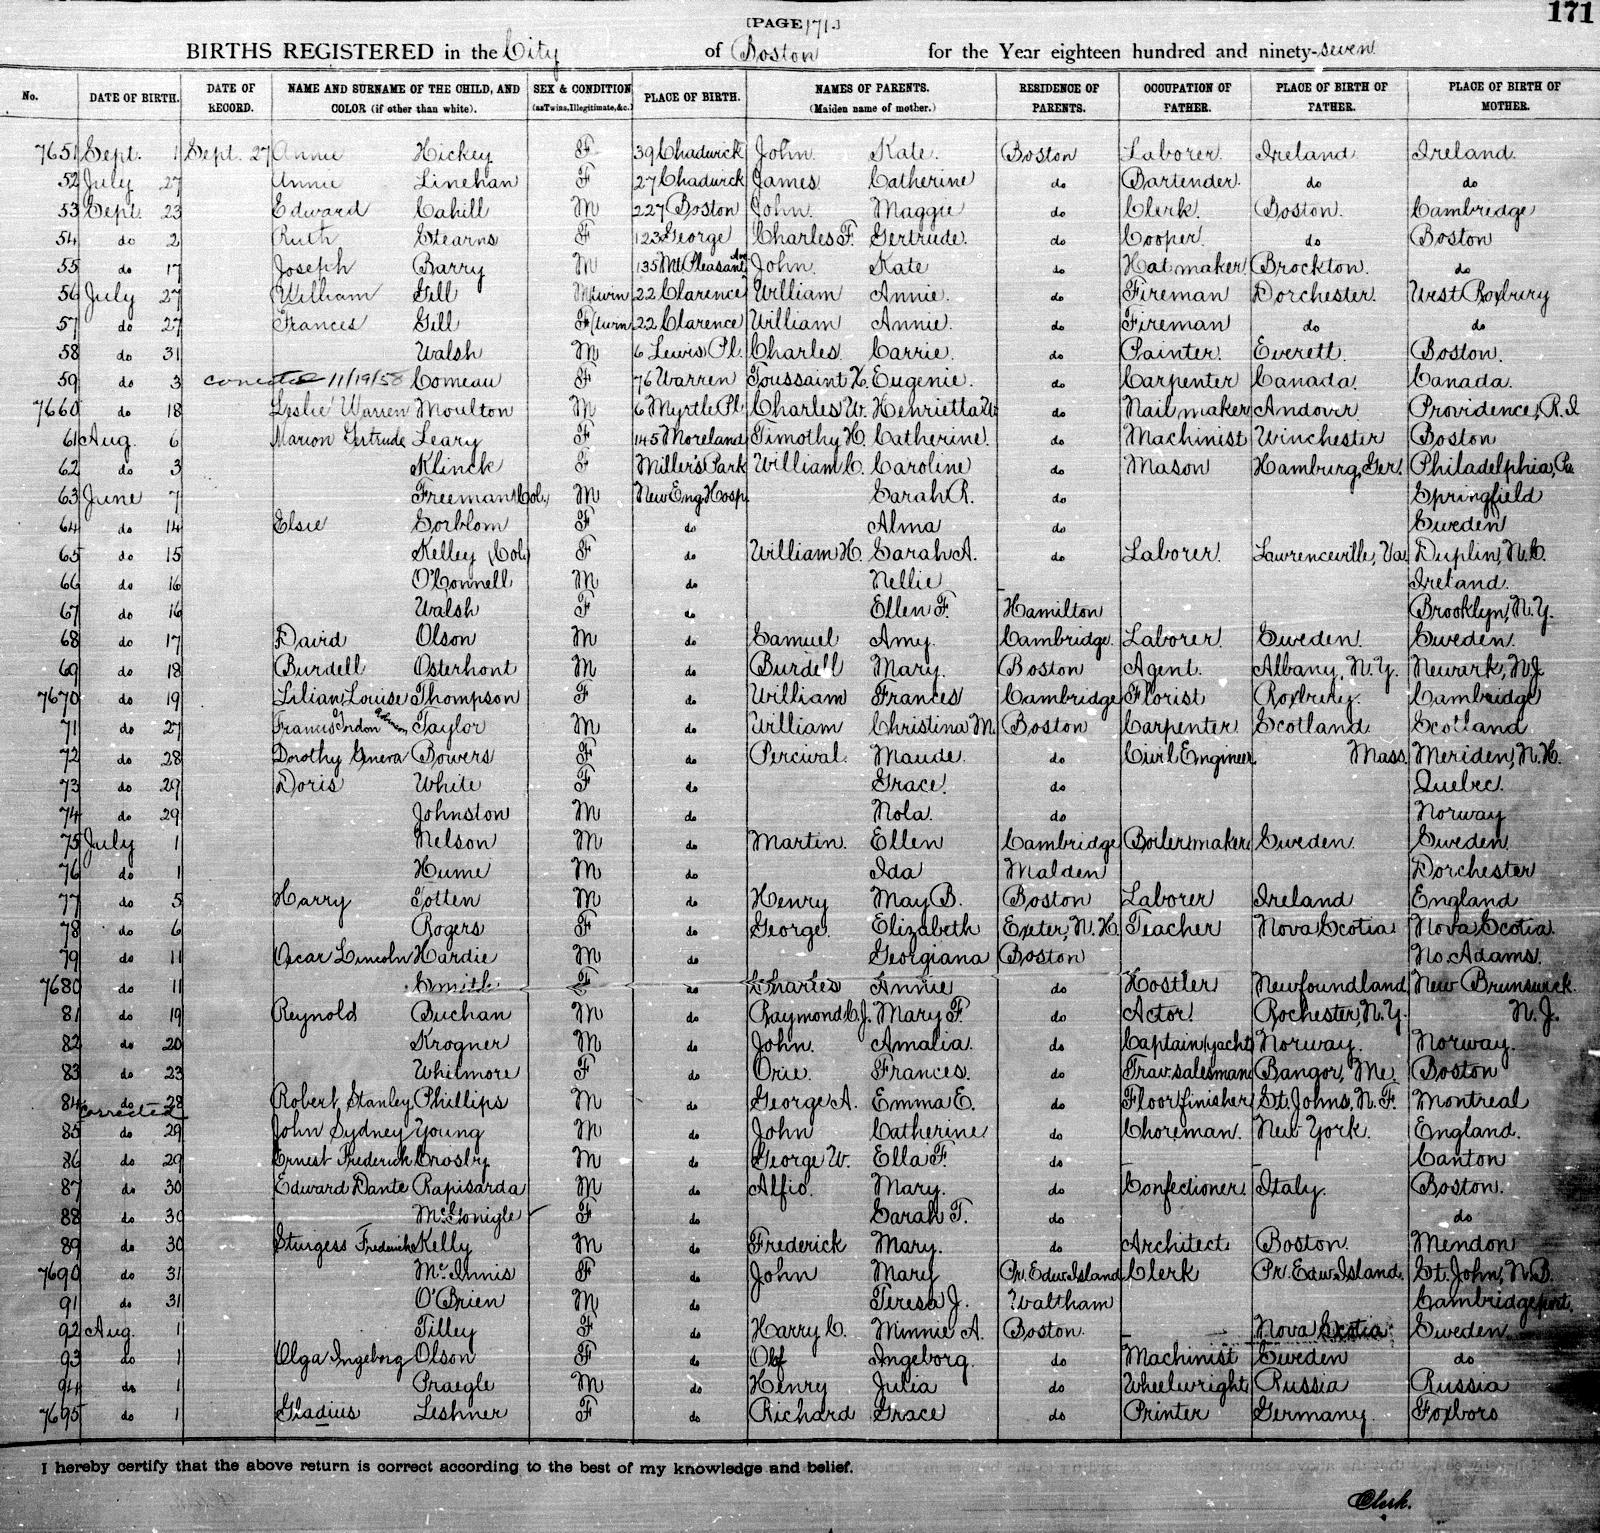 171
[PAGE 171.]
BIRTHS REGISTERED in the City of Boston for the Year eighteen hundred and ninety-seven
No. DATE OF BIRTH. DATE OF RECORD. NAME AND SURNAME OF THE CHILD, AND COLOR (if other than white). SEX & CONDITION (as Twins, Illegitimate, &c.) PLACE OF BIRTH. NAMES OF PARENTS. (Maiden name of mother.) RESIDENCE OF PARENTS. OCCUPATION OF FATHER. PLACE OF BIRTH OF FATHER. PLACE OF BIRTH OF MOTHER.
7651 Sept. 1 Sept. 27 Annie Hickey F 39 Chadwick John Kate. Boston Laborer. Ireland Ireland.
52 July 27 Annie Linehan F 27 Chadwick James Catherine do Bartender. do do
53 Sept. 23 Edward Cahill M 227 Boston John. Maggie do Clerk. Boston. Cambredge
54 do 2 Ruth Stearns F 123 George Charles F. Gertrude. do Cooper. do Boston
55 do 17 Joseph Barry M 135 Mt Pleasant Av John. Kate do Hat maker. Brockton. do
56 July 27 William Gill M twin 22 Clarence William Annie. do Fireman Dorchester. West Roxbury
57 do 27 Frances Gill F (twin 22 Clarence William Annie. do Fireman do do
58 do 31 Walsh M 6 Lewis Pl. Charles Carrie. do Painter. Everett. Boston.
59 do 3 corrected 11/19/58 Comeau F 76 Warren Toussaint X. Eugenie. do Carpenter Canada. Canada.
7660 do 18 Leslie Warren Moulton M 6 Myrtle Pl. Charles W. Henrietta W do Nail maker Andover Providence, R.I
61 Aug. 6 Marion Gertrude Leary F 145 Moreland Timothy H. Catherine. do Machinist Winchester Boston
62 do 3 Klinck F Miller's Park William C. Caroline do Mason Hamburg, Ger. Philadelphia, Pa
63 June 7 Freeman (Col. M New Eng. Hosp. Sarah R. do Springfield
64 do 14 Elsie Sorblom F do Alma do Sweden
65 do 15 Kelley (Col) F do William H. Sarah A. do Laborer. Lawrenceville, Va. Duplin, N.C.
66 do 16 O'Connell M do Nellie Ireland.
67 do 16 Walsh F do Ellen F. Hamilton Brooklyn, N.Y.
68 do 17 David Olson M do Samuel Amy. Cambridge. Laborer. Sweden. Sweden.
69 do 18 Burdell Osterhont M do Burdell Mary. Boston Agent. Albany, N.Y. Newark, N.J
7670 do 19 Lilian Louise Thompson F do William Frances Cambridge Florist Roxbury. Cambridge
71 do 27 Francis Gordon Taylor M do William Christina M. Boston Carpenter Scotland Scotland
72 do 28 Dorothy Geneva Bowers F do Percival. Maude. do Civil Engineer. Mass. Meriden, N.H.
73 do 29 Doris White F do Grace. do Quebec.
74 do 29 Johnston M do Nola. do Norway
75 July 1 Nelson M do Martin. Ellen Cambridge Boilermaker. Sweden. Sweden
76 do 1 Hume M do Ida Malden Dorchester
77 do 5 Harry Totten M do Henry May B. Boston Laborer Ireland England
78 do 6 Rogers F do George. Elizabeth Exeter, N.H. Teacher Nova Scotia Nova Scotia.
79 do 11 Oscar Lincoln Hardie M do Georgiana Boston No. Adams.
7680 do 11 Smith F do Charles Annie do Hostler Newfoundland New Brunswick.
81 do 19 Reynold Buchan M do Raymond C.J. Mary F. do Actor. Rochester, N.Y. N.J.
82 do 20 Krogner M do John. Amalia. do Captain (yacht) Norway. Norway.
83 do 23 Whilmore F do Orie. Frances. do Trav. salesman Bangor, Me. Boston
84 do 28 Robert Stanley Phillips M do George A. Emma E. do Floor finisher St. Johns, N.F. Montreal
corrected
85 do 29 John Sydney Young M do John Catherine do Choreman. New York. England.
86 do 29 Ernest Frederich Crosby M do George W. Ella F. do Canton
87 do 30 Edward Dante Rapisarda M do Alfio. Mary. do Confectioner. Italy. Boston.
88 do 30 McGonigle F do Sarah T. do do
89 do 30 Sturgess Frederick Kelly M do Frederick Mary. do Architect Boston. Mendon
7690 do 31 McInnis F do John Mary Pr. Edw. Island Clerk Pr. Edw. Island. St. John, N.B.
91 do 31 O'Brien M do Teresa J. Waltham Cambridgeport.
92 Aug. 1 Tilley F do Harry C. Minnie A. Boston. Nova Scotia Sweden
93 do 1 Olga Ingeborg Olson F do Olof Ingeborg. do Machinist Sweden do
94 do 1 Praegle M do Henry Julia do Wheelwright Russia Russia
7695 do 1 Gladius Leshner F do Richard Grace do Printer Germany. Foxboro
I hereby certify that the above return is correct according to the best of my knowledge and belief.
Clerk.